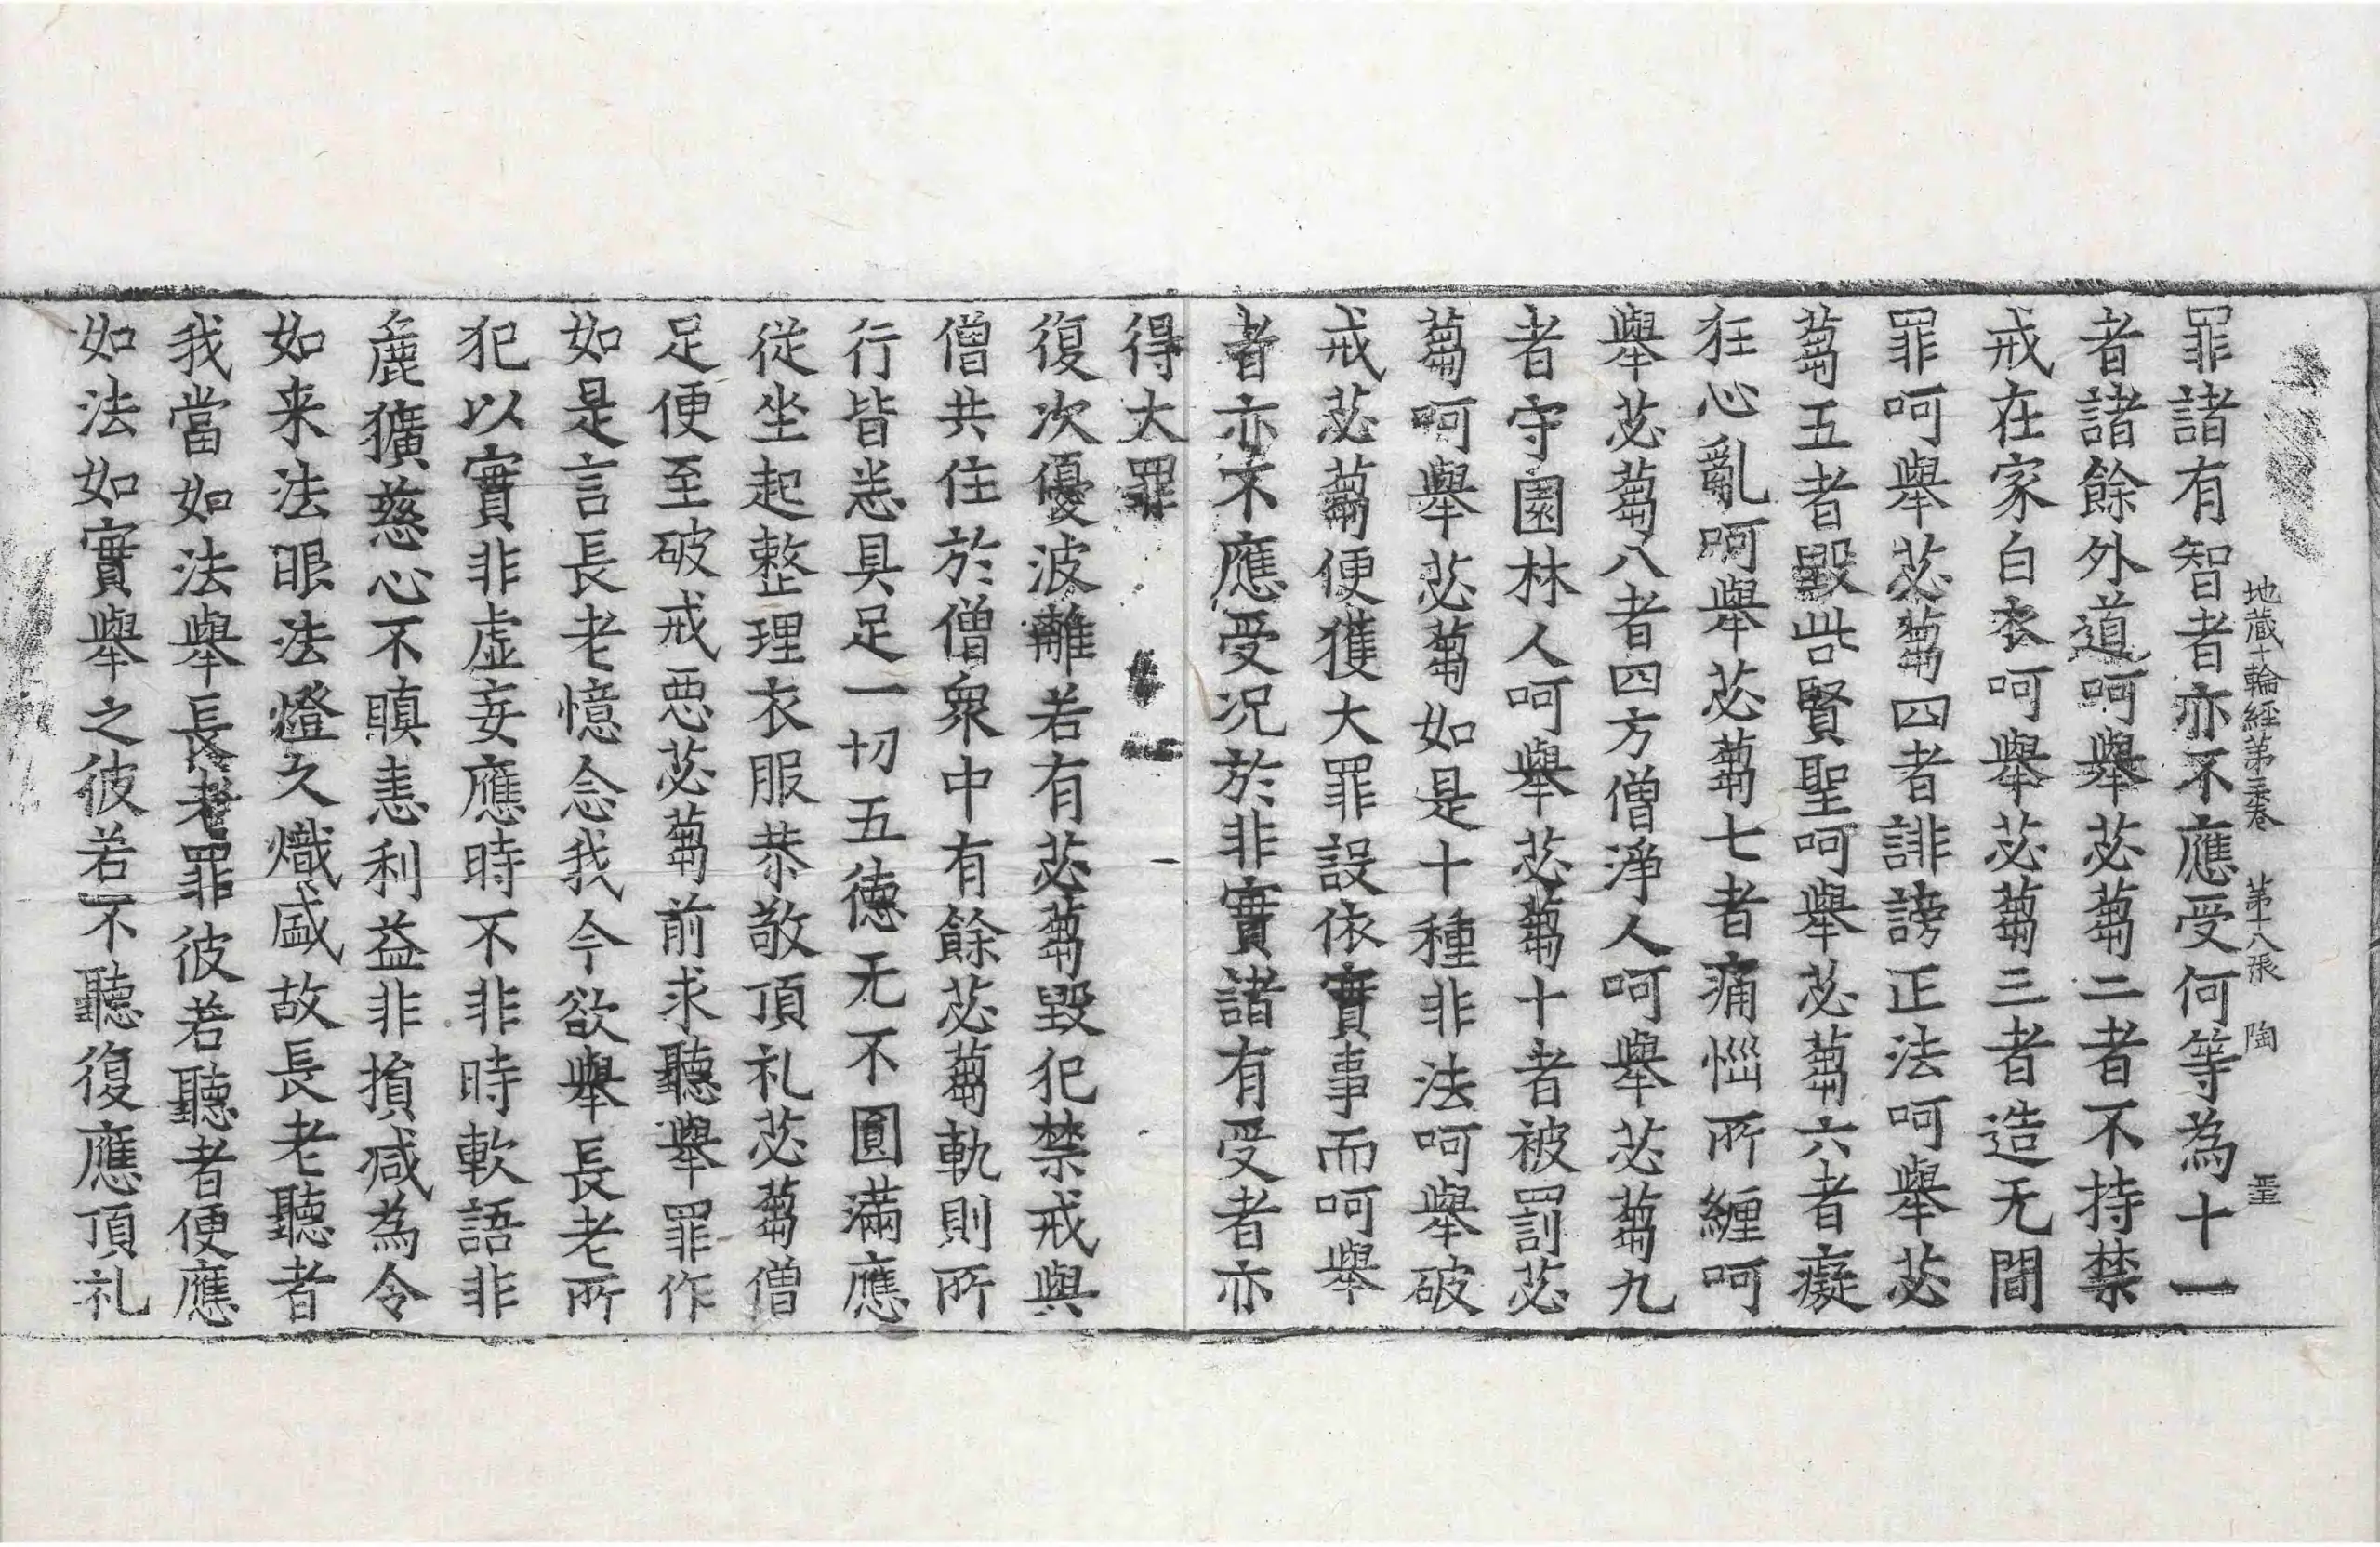 地藏十輪經第三卷 第十八張 陶
罪諸有智者亦不應受何等為十一
者諸餘外道呵舉苾蒭二者不持禁
戒在家白衣呵舉苾蒭三者造无間
罪呵舉苾蒭四者誹謗正法呵舉苾
蒭五者毀呰賢聖呵舉苾蒭六者癡
狂心亂呵舉苾蒭七者痛惱所纏呵
舉苾蒭八者四方僧淨人呵舉苾蒭九
者守園林人呵舉苾蒭十者被罰苾
蒭呵舉苾蒭如是十種非法呵舉破
戒苾蒭便獲大罪設依實事而呵舉
者亦不應受况於非實諸有受者亦
得大罪
復次優波離若有苾蒭毀犯禁戒與
僧共住於僧衆中有餘苾蒭軌則所
行皆悉具足一切五德无不圓滿應
從坐起整理衣服恭敬頂礼苾蒭僧
足便至破戒惡苾蒭前求聽舉罪作
如是言長老憶念我今欲舉長老所
犯以實非虛妄應時不非時軟語非
麁獷慈心不瞋恚利益非損減為令
如来法眼法燈久熾盛故長老聽者
我當如法舉長老罪彼若聽者便應
如法如實舉之彼若不聽復應頂礼